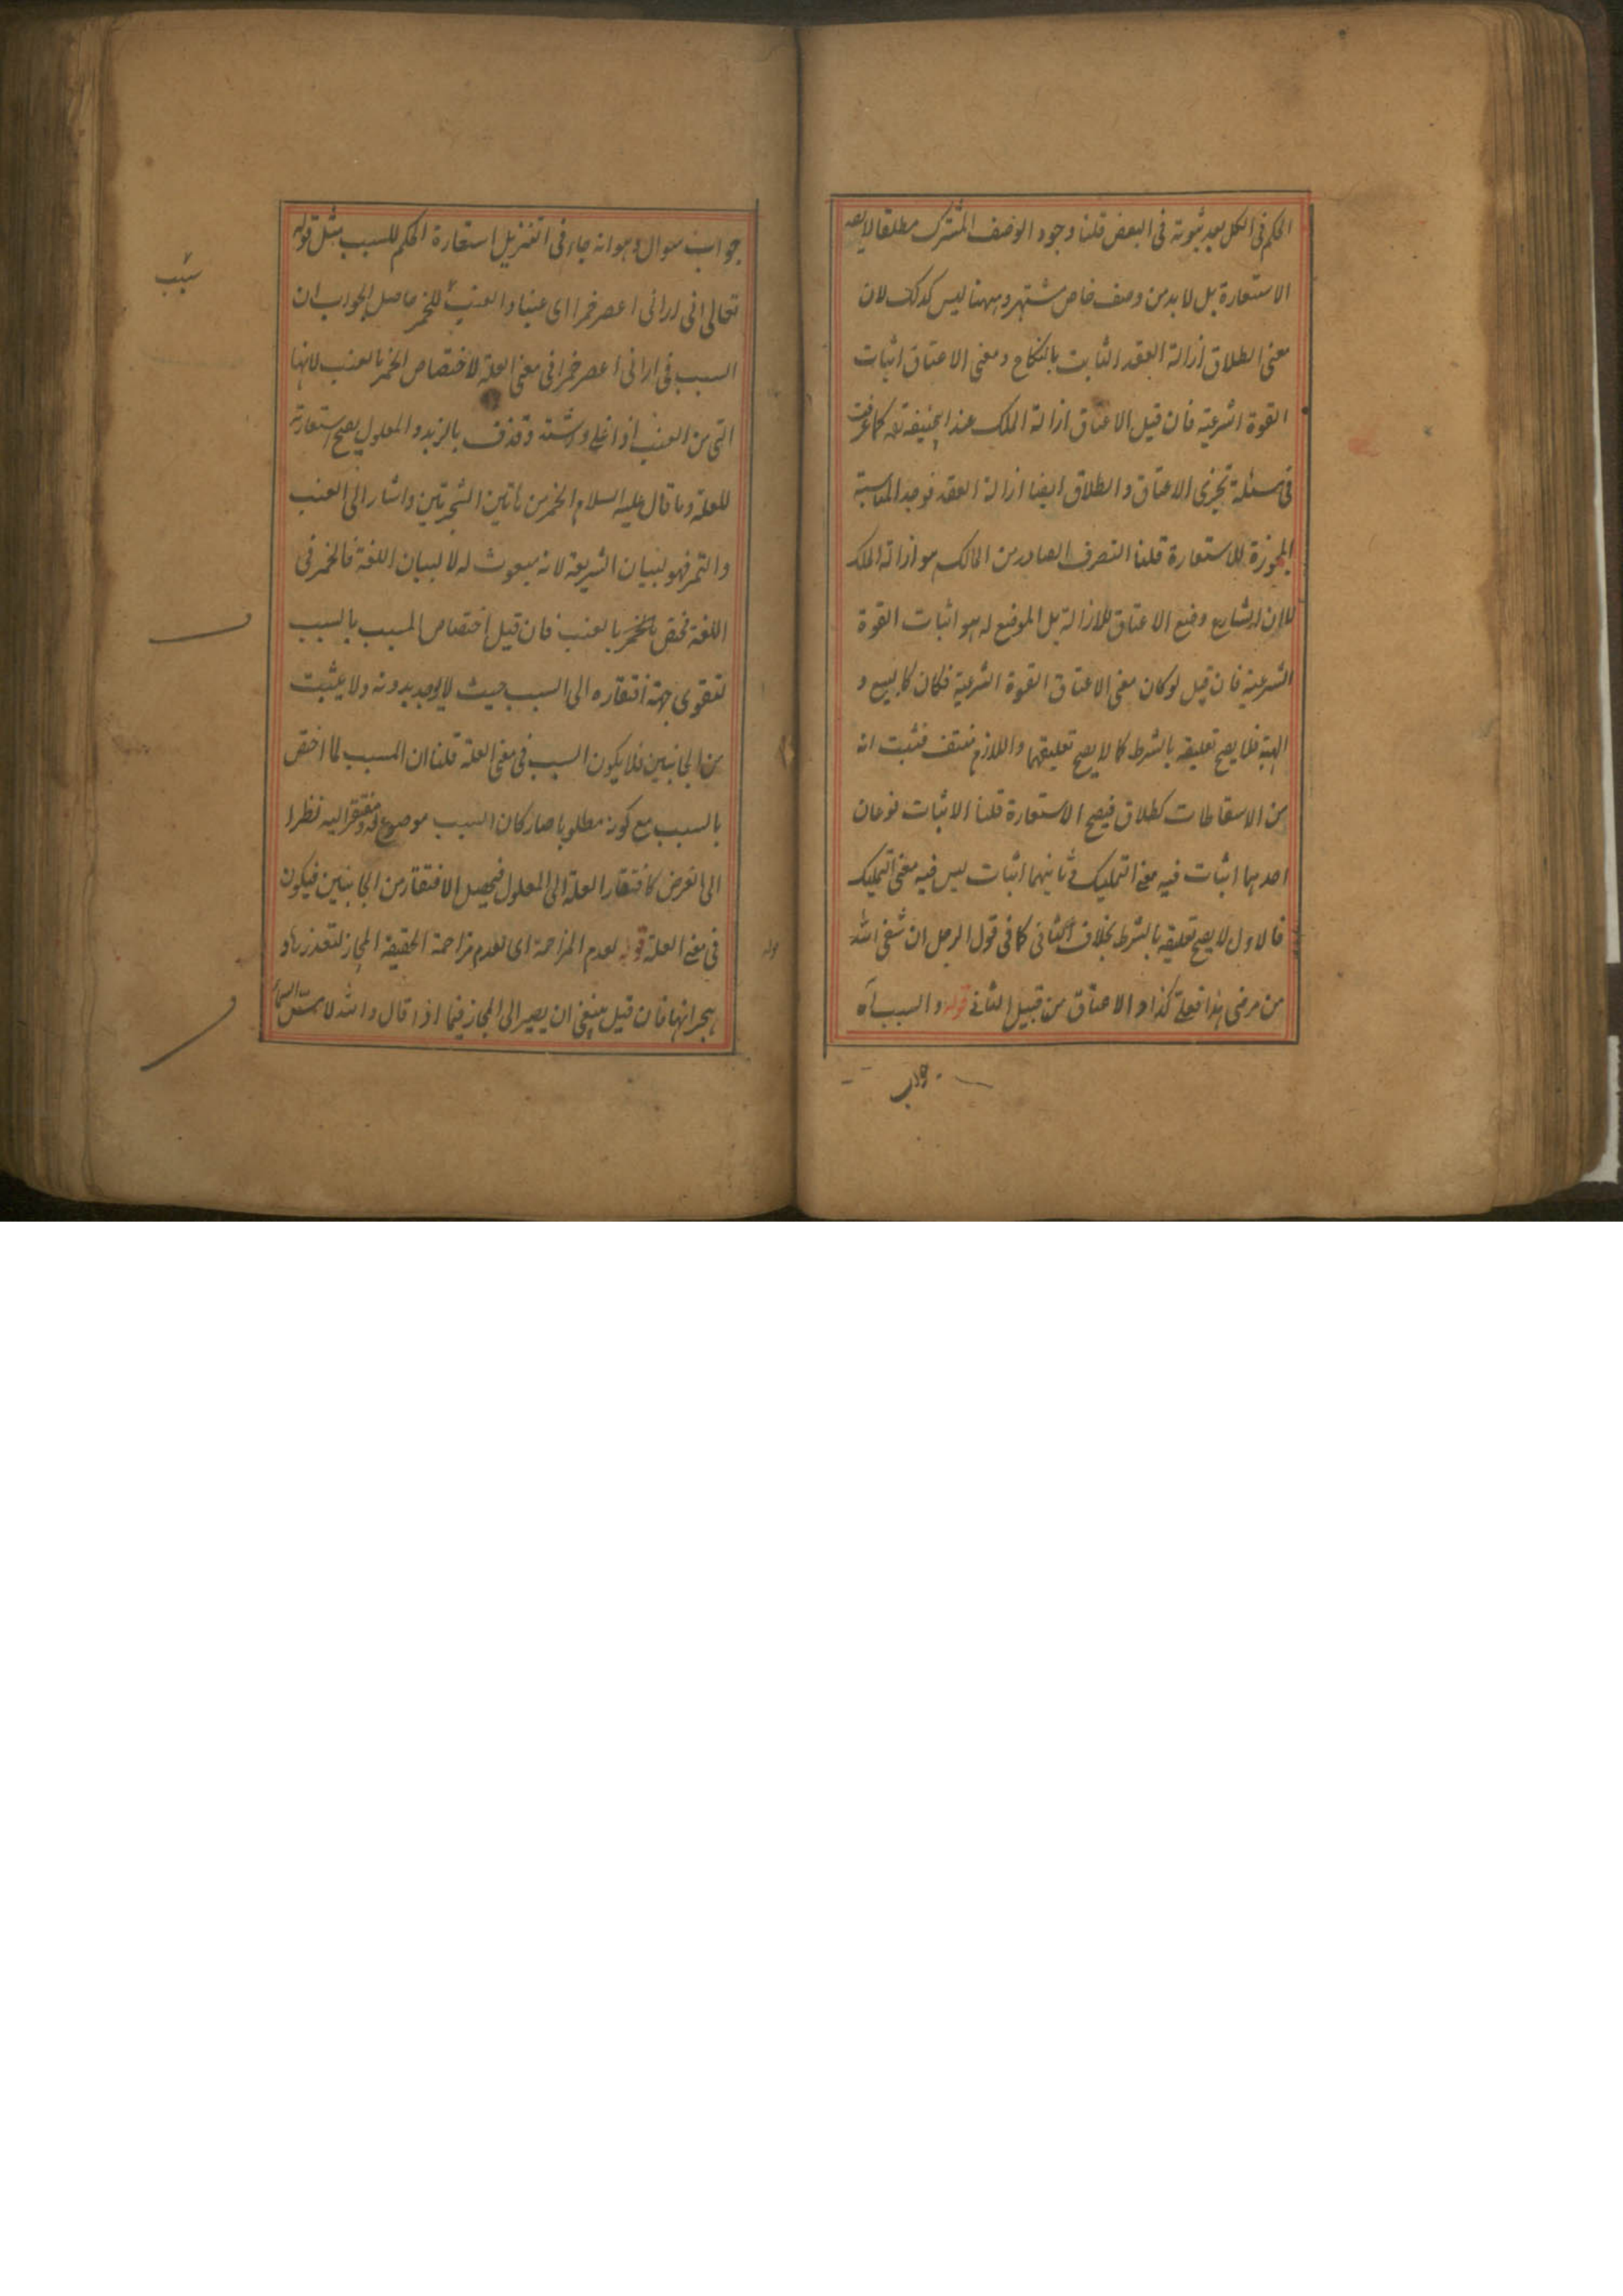 الحكم فى الكل بعد ثبوته فى البعض قلنا وجود الوصف المشترك مطلقا لا يصح
الاستعارة بل لا بد من وصف خاص مشتهر وههنا ليس كذلك لان
معنى الطلاق ازالة العقد الثابت بالنكاح ومعنى الاعتاق اثبات
القوة الشرعية فان قيل الاعتاق ازالة الملك عند ابيحنيفة كما عرفت
فى مسئلة تجزى الاعتاق والطلاق ايضا ازالة العقد فوجد المناسبة
المجوزة للاستعارة قلنا التصرف الصادر من المالك هو ازالة الملك
لا ان الشارع وضع الاعتاق للازالة بل الموضع له هو اثبات القوة
الشرعية فان قيل لو كان معنى الاعتاق القوة الشرعية فكان كالبيع و
الهبة فلا يصح تعليقه بالشرط كما لا يصح تعليقهما واللازم منتف فثبت انه
من الاسقاطات كطلاق فيصح الاستعارة قلنا الاثبات نوعان
احدهما اثبات فيه معنى التمليك وثانيهما اثبات ليس فيه معنى التمليك
فالاول لا يصح تعليقه بالشرط بخلاف الثانى كما فى قول الرجل ان شفى الله
من مرضى هذا فعلى كذا والاعتاق من قبيل الثانى قوله والسبب آه
جواب
جواب سوال وهو انه جاء فى التنزيل استعارة الحكم للسبب مثل قوله
تعالى انى ارانى اعصر خمرا اى عنبا والعنب للخمر حاصل الجواب ان
سبب
السبب فى ارانى اعصر خمرا فى معنى العلة لاختصاص الخمر بالعنب لانها
التى من العنب اذا غلى واشتد وقذف بالزبد والمعلول يصح استعارته
للعلة وما قال عليه السلام الخمر من هاتين الشجرتين واشار الى العنب
والتمر فهو لبيان الشريعة لانه مبعوث له لا لبيان اللغة فالخمر فى
اللغة تختص بالخمر بالعنب فان قيل اختصاص المسبب بالسبب
لتقوى جهة افتقاره الى السبب حيث لا يوجد بدونه ولا يثبت
من الجانبين فلا يكون السبب فى معنى العلة قلنا ان المسبب لما اختص
بالسبب مع كونه مطلوبا صار كان السبب موضوع له ومفتقر اليه نظرا
الى الغرض كافتقار العلة الى المعلول فيحصل الافتقار من الجانبين فيكون
فى معنى العلة قوله لعدم المزاحمة اى لعدم مزاحمة الحقيقة المجاز لتعذرها و
هجرانها فان قيل ينبغى ان يصير الى المجاز فيما اذا قال والله لامس السماء